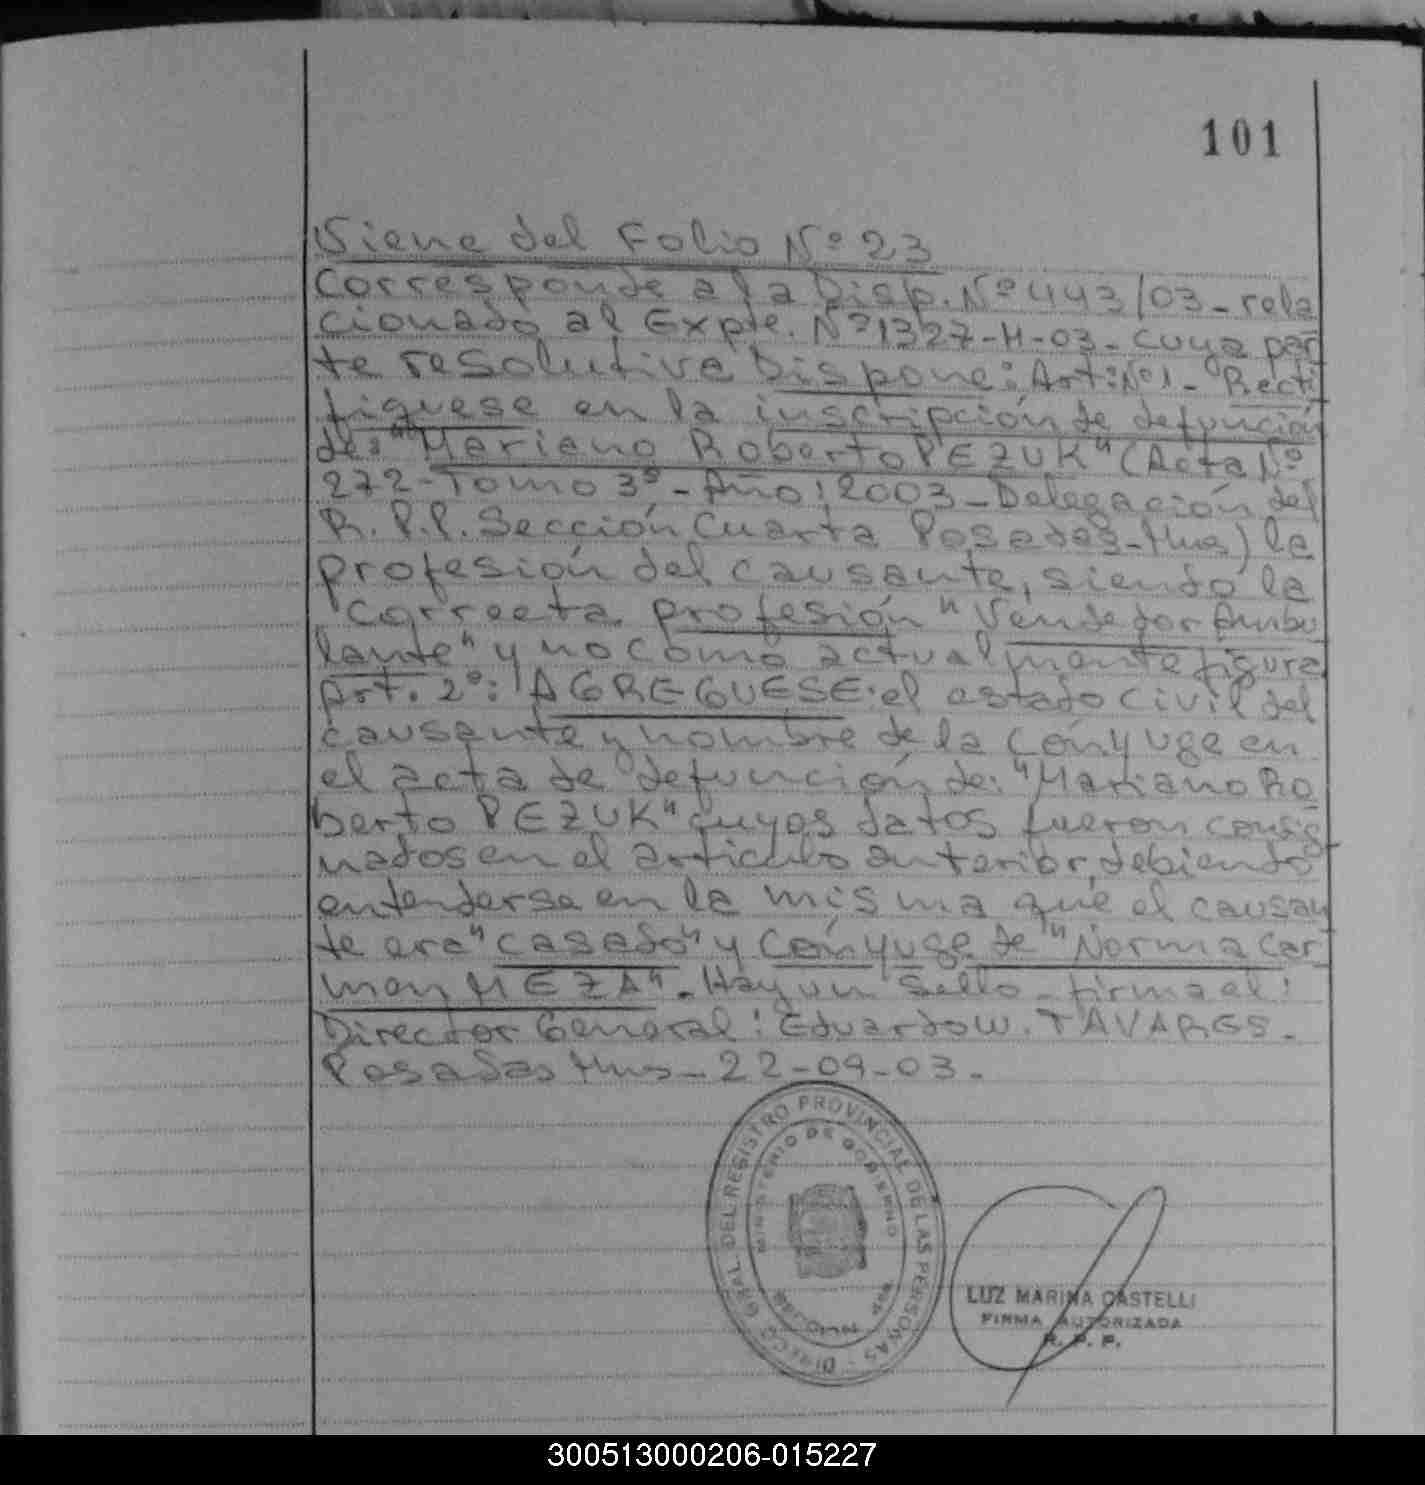 101
Viene del Folio Nº 23
Corresponde a la Disp. Nº 443/03 - rela
cionado al Expte. Nº 1327-H-03 - cuya par
te resolutiva Dispone: Art: Nº 1 - Recti
fiquese en la inscripción de defunción
de: "Mariano Roberto PEZUK" (Acta Nº
272 - Tomo 3º - Año: 2003 - Delegación del
R.P.P. Sección Cuarta Posadas - Mnes) la
profesión del causante, siendo la
correcta profesión "Vendedor Ambu
lante" y no como actualmente figura
Art. 2º: AGREGUESE: el estado civil del
causante y nombre de la cónyuge en
el acta de defunción de: "Mariano Ro
berto PEZUK" cuyos datos fueron consig
nados en el artículo anterior, debiendo
entenderse en la misma que el causan
te era "casado" y cónyuge de "Norma Car
men MEZA". Hay un Sello - firma el:
Director General: Eduardo W. TAVARES -
Posadas Mns - 22-09-03 -
DIRECC. GRAL. DEL REGISTRO PROVINCIAL DE LAS PERSONAS
MINISTERIO DE GOBIERNO
LUZ MARINA CASTELLI
FIRMA AUTORIZADA
R. P. P.
300513000206-015227